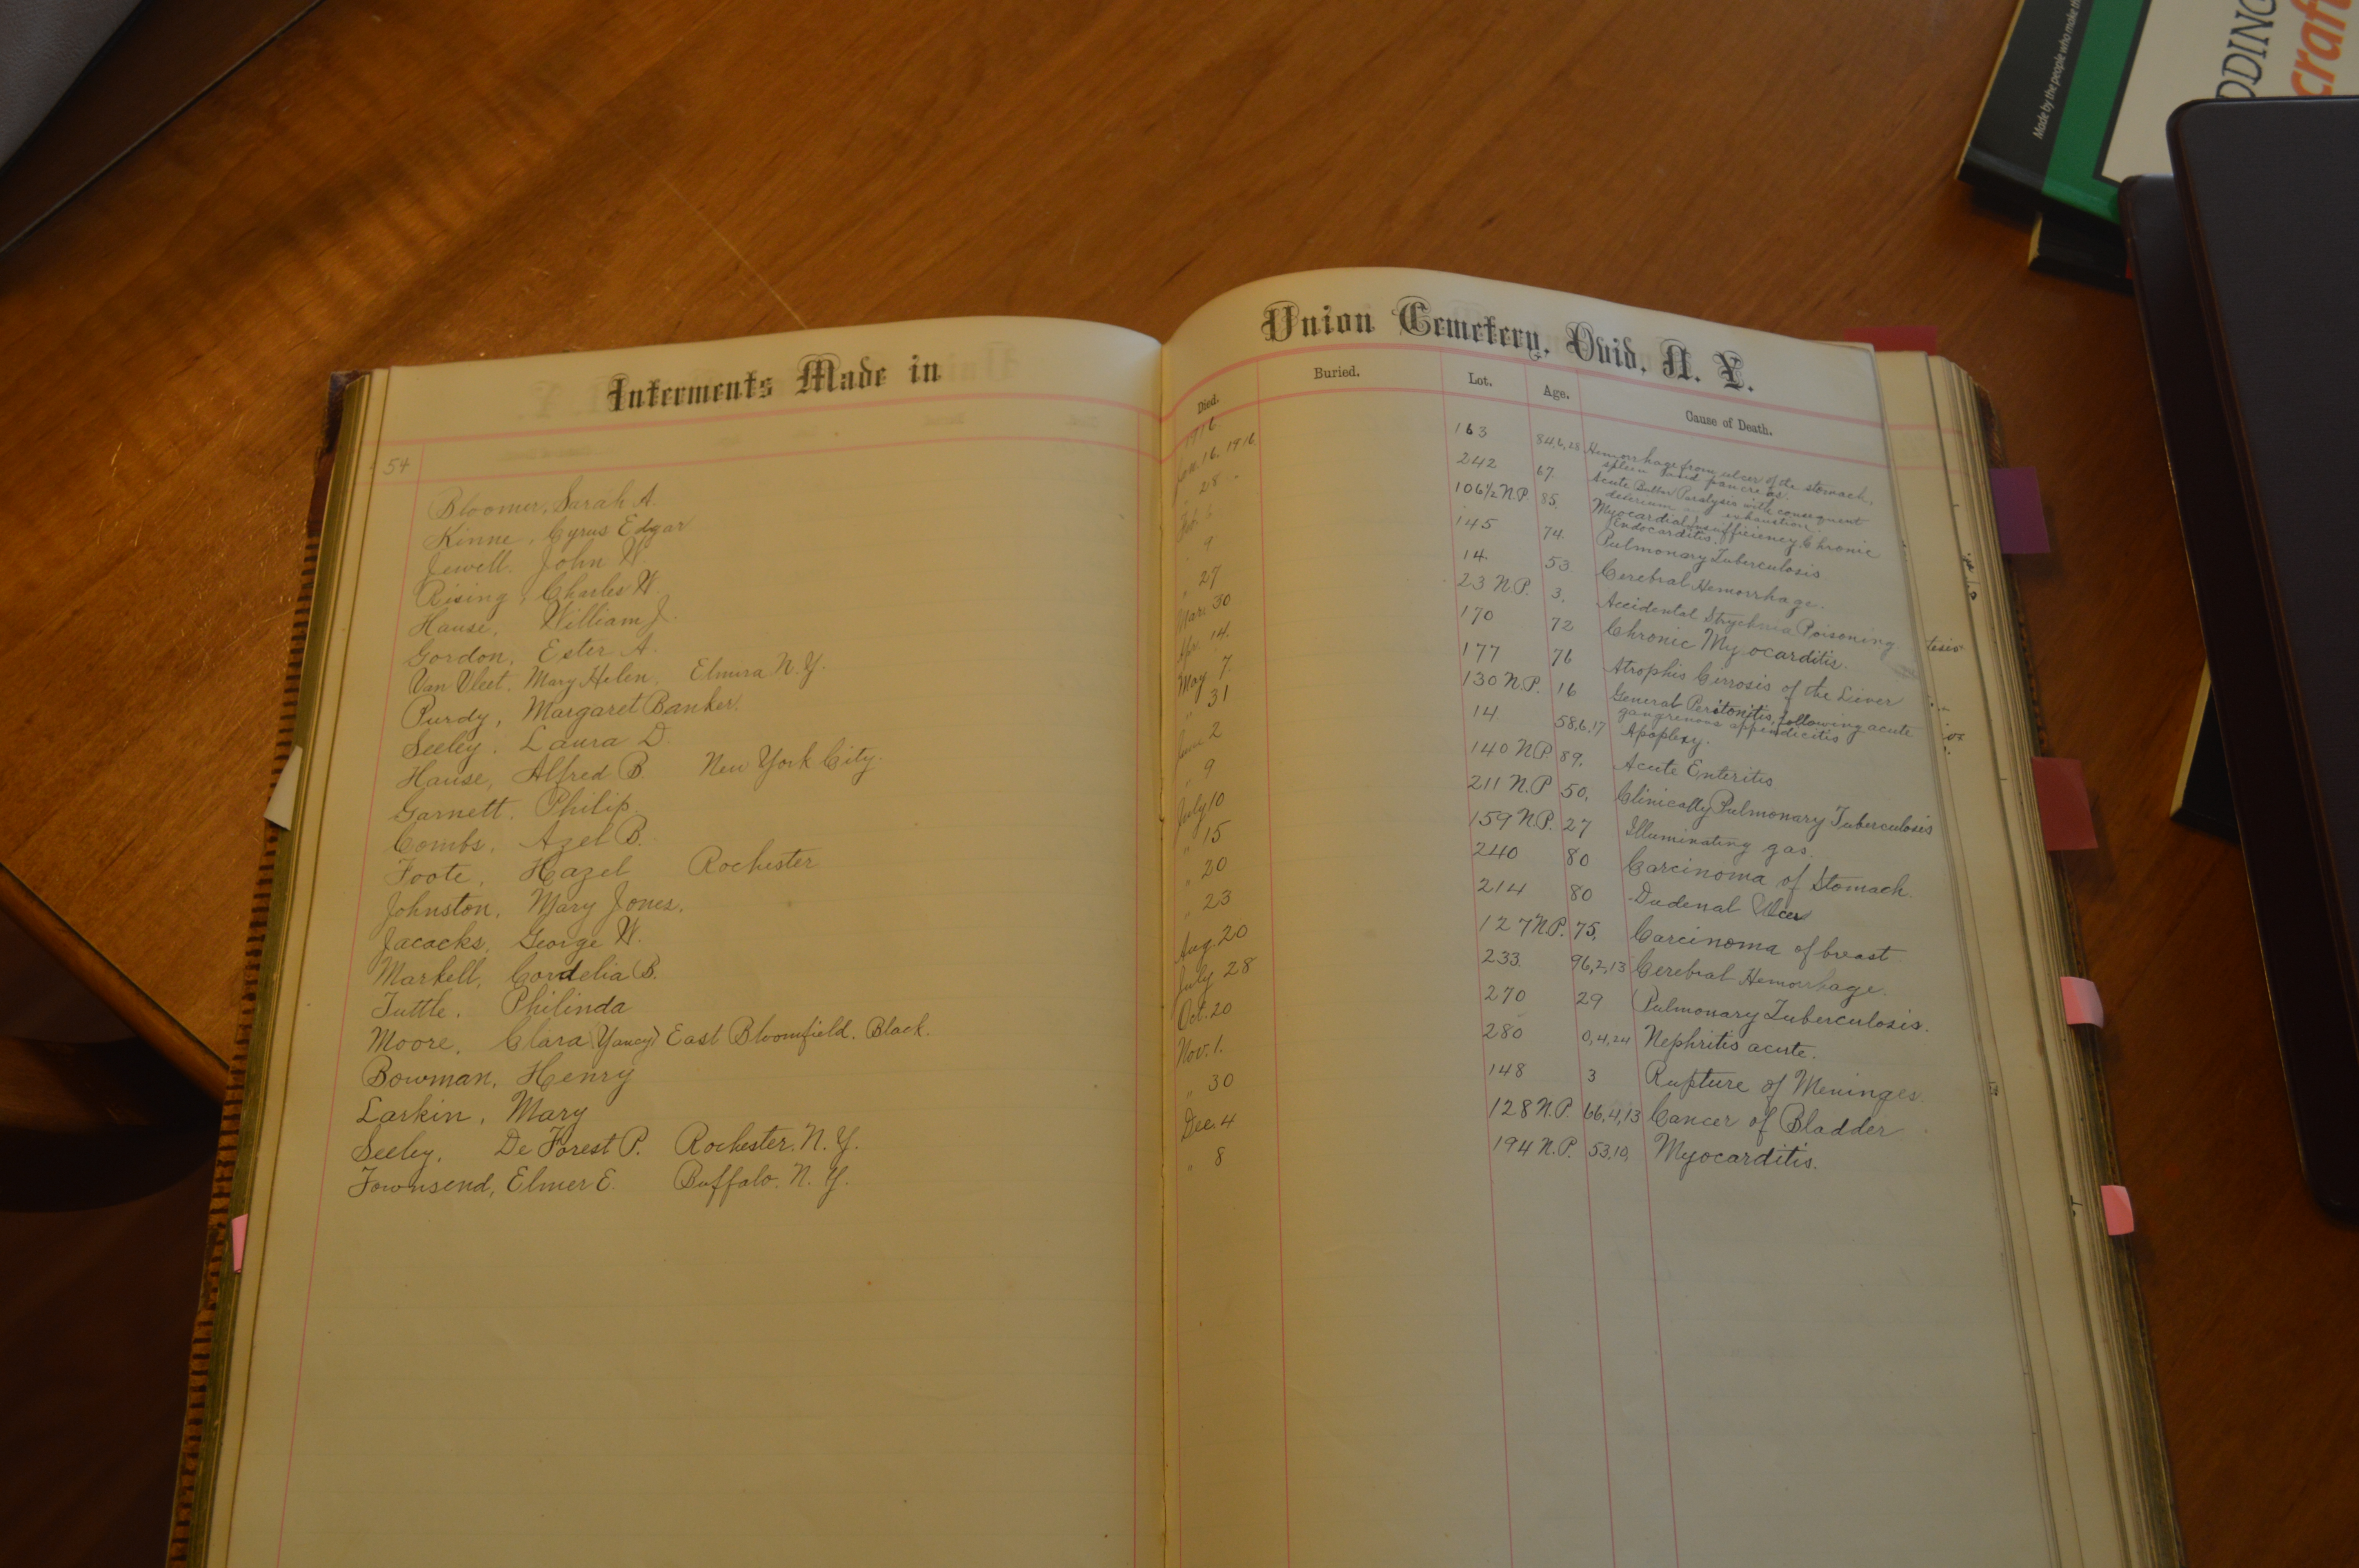 Made by the people who make th
DDING
craft
Interments Made in
Union Cemetery, Ovid, N. Y.
Died. Buried. Lot. Age. Cause of Death.
54
1916
Bloomer, Sarah A. Jan. 16, 1916. 163 84,6,28 Hemorrhage from ulcer of the stomach, spleen and pancreas.
Kinne, Cyrus Edgar " 28 " 242 67. Acute Bulbar Paralysis with consequent delerium and exhaustion
Jewell. John W. Feb. 106½ N.P. 85. Myocardial insufficiency, Chronic Endocarditis.
Rising, Charles W. " 9 145 74 Pulmonary Tuberculosis
Hause, William J. " 27 14. 53 Cerebral Hemorrhage.
Gordon, Ester A. Mar. 30 23 N.P. 3. Accidental Strychnia Poisoning
Van Vleet, Mary Helen. Elmira N.Y. Apr. 14. 170 72 Chronic Myocarditis.
Purdy, Margaret Banker. May 7 177 76 Atrophis Cirrosis of the Liver
Seeley, Laura D. " 31 130 N.P. 16 General Peritonitis, following acute gangrenous appendicitis
Hause, Alfred B. New York City. June 2 14 58,6,17 Apoplexy.
Garnett, Philip " 9 140 N.P. 89. Acute Enteritis
Combs, Azel B. July 10 211 N.P 50, Clinically Pulmonary Tuberculosis
Foote, Hazel Rochester " 15 159 N.P. 27 Illuminating gas.
Johnston, Mary Jones. " 20 240 80 Carcinoma of Stomach.
Jacacks, George W. " 23 214 80 Dudenal Ulcer
Markell, Cordelia B. Aug. 20 127 N.P. 75, Carcinoma of breast
Tuttle, Philinda July 28 233. 96,2,13 Cerebral Hemorrhage.
Moore, Clara (Yancy) East Bloomfield, Black. Oct. 20 270 29 Pulmonary Tuberculosis.
Bowman, Henry Nov. 1. 280 0,4,24 Nephritis acute.
Larkin, Mary " 30 148 3 Rupture of Meninges.
Seeley, De Forest P. Rochester, N.Y. Dec. 4 128 N.P. 66,4,13 Cancer of Bladder
Townsend, Elmer E. Buffalo, N.Y. " 8 194 N.P. 53,10, Myocarditis.